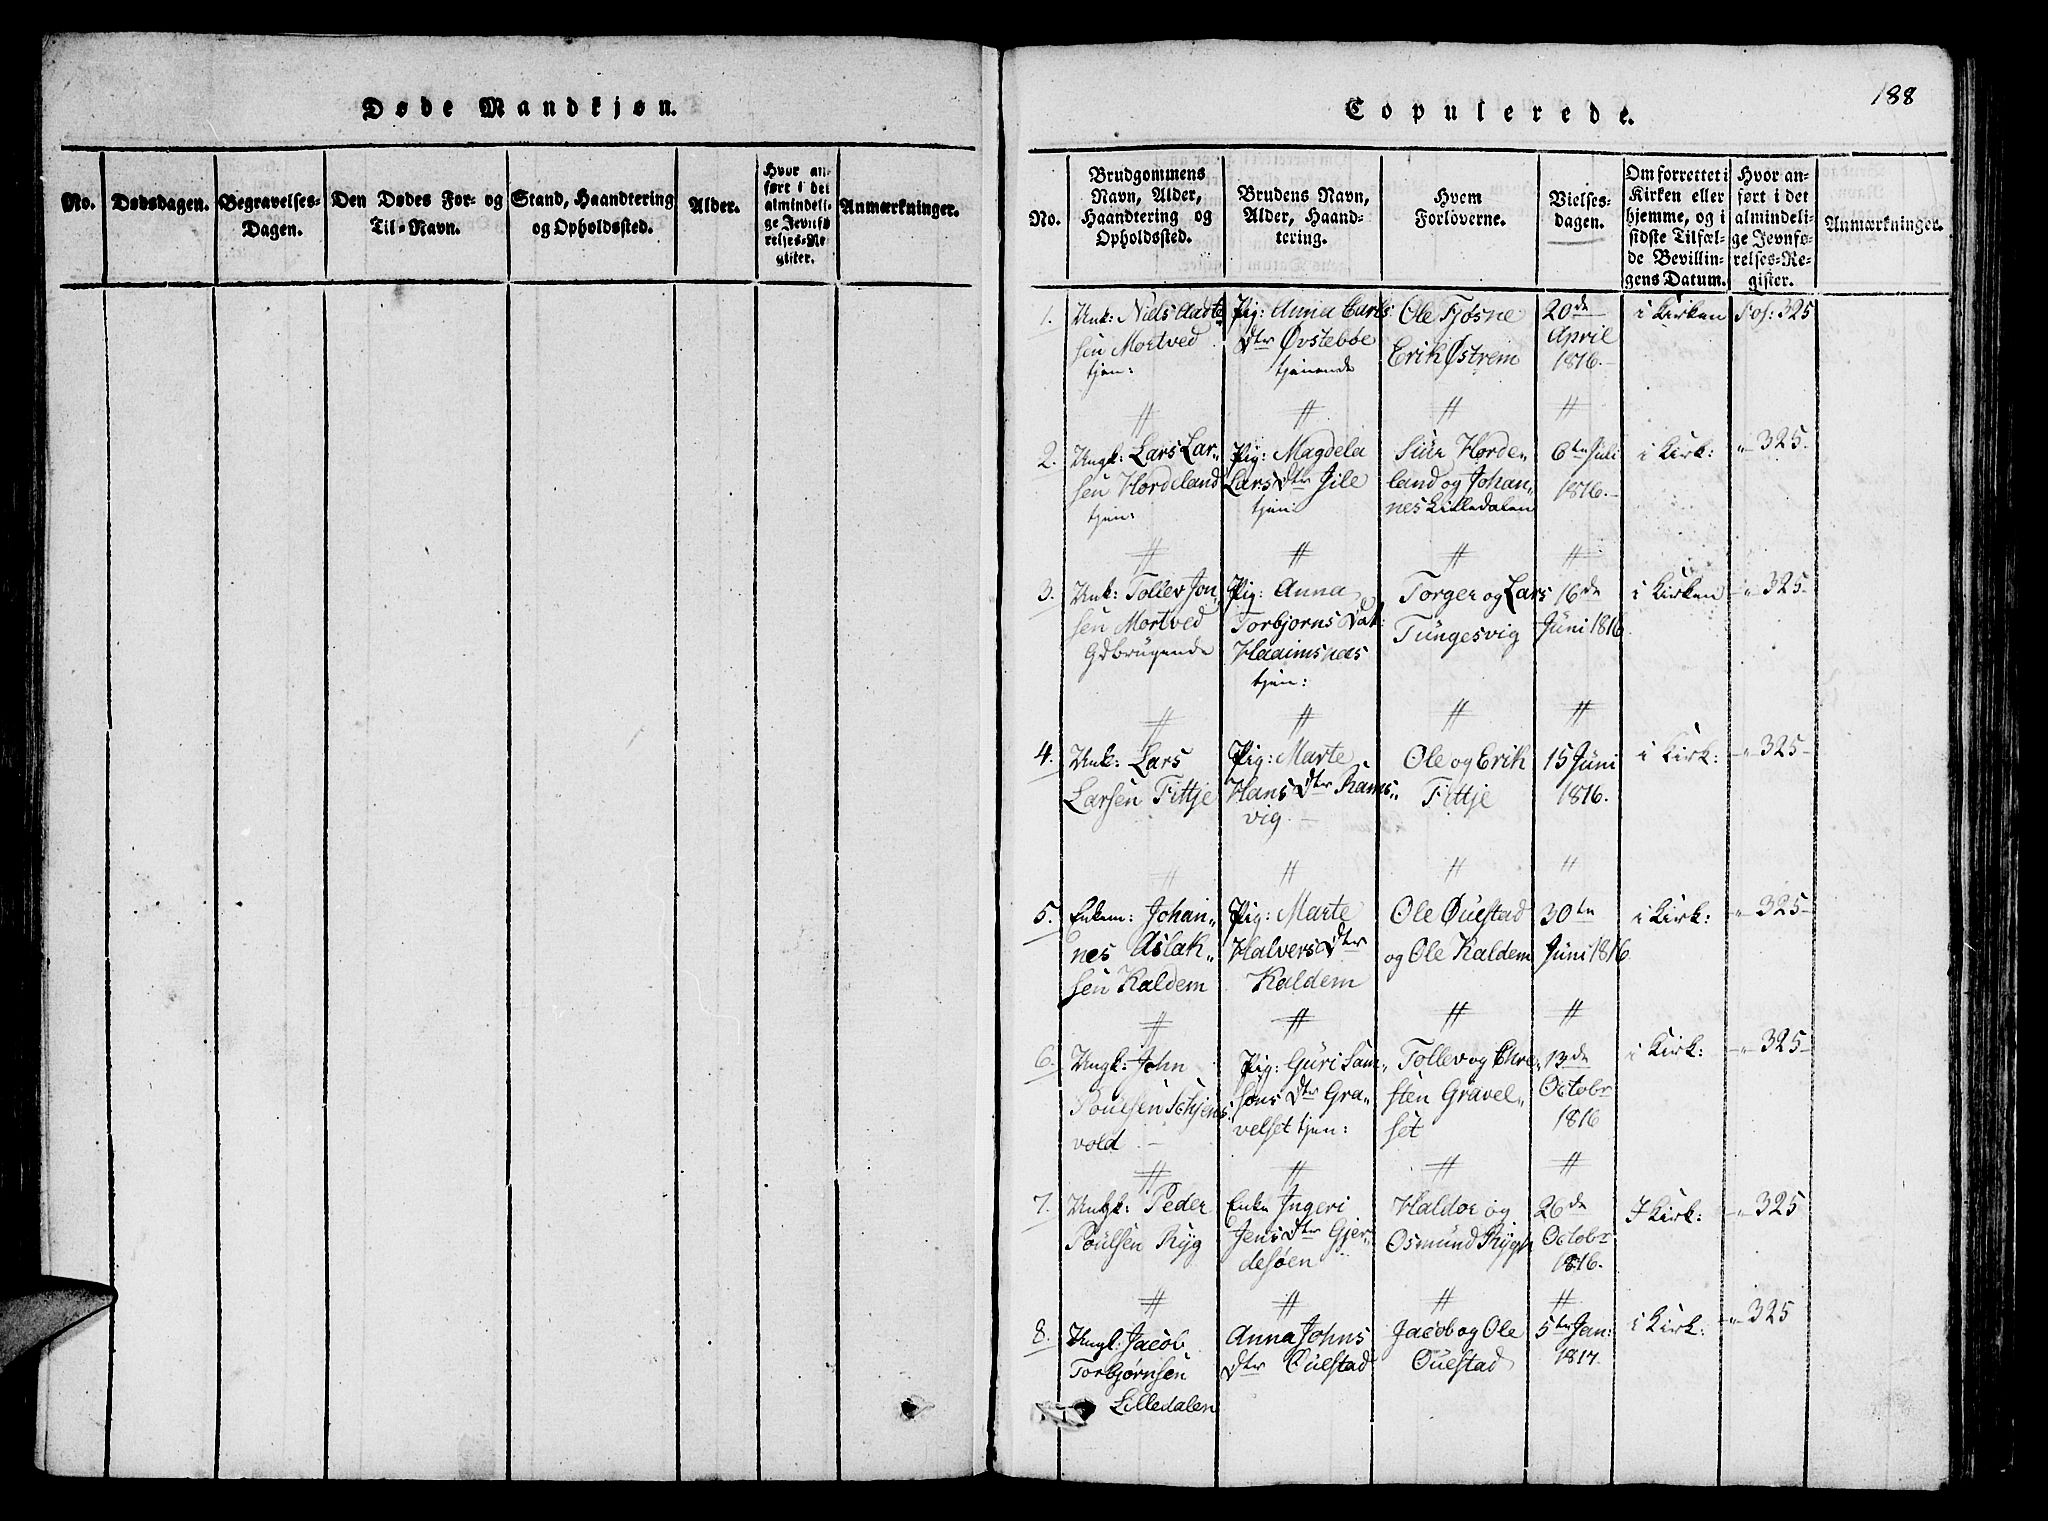 Døde Mandkjøn.
No.
Dødsdagen.
Begravelses-
Dagen.
Den Dødes For- og
Til-Navn.
Stand, Haandtering
og Opholdssted.
Alder.
Hvor an-
ført i det
almindeli-
ge Jevnfø-
relses-Re-
gister.
Anmærkninger.
188
Copulerede.
No.
Brudgommens
Navn, Alder,
Haandtering og
Opholdssted.
Brudens Navn,
Alder, Haand-
tering.
Hvem
Forloverne.
Vielses-
dagen.
Om forrettet i
Kirken eller
hjemme, og i
sidste Tilfæl-
de Bevillin-
gens Datum.
Hvor an-
ført i det
almindeli-
ge Jevnfø-
relses-Re-
gister.
Anmærkninger.
1.
Unk: Niels
sen Mortved
tjen:
Pig: Anna
Dtr Øvstebøe
tjenende
Ole Tjøsne
Erik Østrem
20de
April
1816.
i Kirken
Fol: 325
2.
Ungk: Lars Lar-
sen Hordeland
tjen:
Pig: Magdela
Lars Dtr Jile
tjen:
Siur Horde-
land og Johan-
nes Lilledalen
6te Juli
1816.
i Kirk:
-"- 325-
3.
Unk: Tollev Jon-
sen Mortved
Gdbrugende
Pig: Anna
Torbjorns Dat:
Haaimsnees
tjen:
Torger og Lars
Tungesvig
16de
Juni 1816
i Kirken
-"- 325-
4.
Unk: Lars
Larsen Fittje
Pig: Marte
Hans Dtr Rams-
vig
Ole og Erik
Fittje
15 Juni
1816.
i Kirk:
-"- 325-
5.
Enkem: Johan-
nes Aslak-
sen Kaldem
Pig: Marte
Halvers Dtr
Kaldem
Ole Øuestad
og Ole Kaldem
30te
Juni 1816
i Kirk:
-"- 325-
6.
Ungk: John
Poulsen Schjens-
vold
Pig: Guri Sam-
sons Dtr Gra-
velset tjen:
Tollev og Chre-
sten Gravel-
set
13de
Octobr
1816
i Kirk:
-"- 325-
7.
Ungk: Peder
Poulsen Ryg
Enke Ingeri
Jens Dtr Gjer-
desøen
Haldor og
Osmund Ryg
26de
Octobr
1816.
I Kirk:
-"- 325
8.
Ungk: Jacob
Torbjørnsen
Lilledalen
Anna Johns
Dtr Ouestad
Jacob og Ole
Ouestad
5te Jan:
1817.
i Kirk:
-"- 325